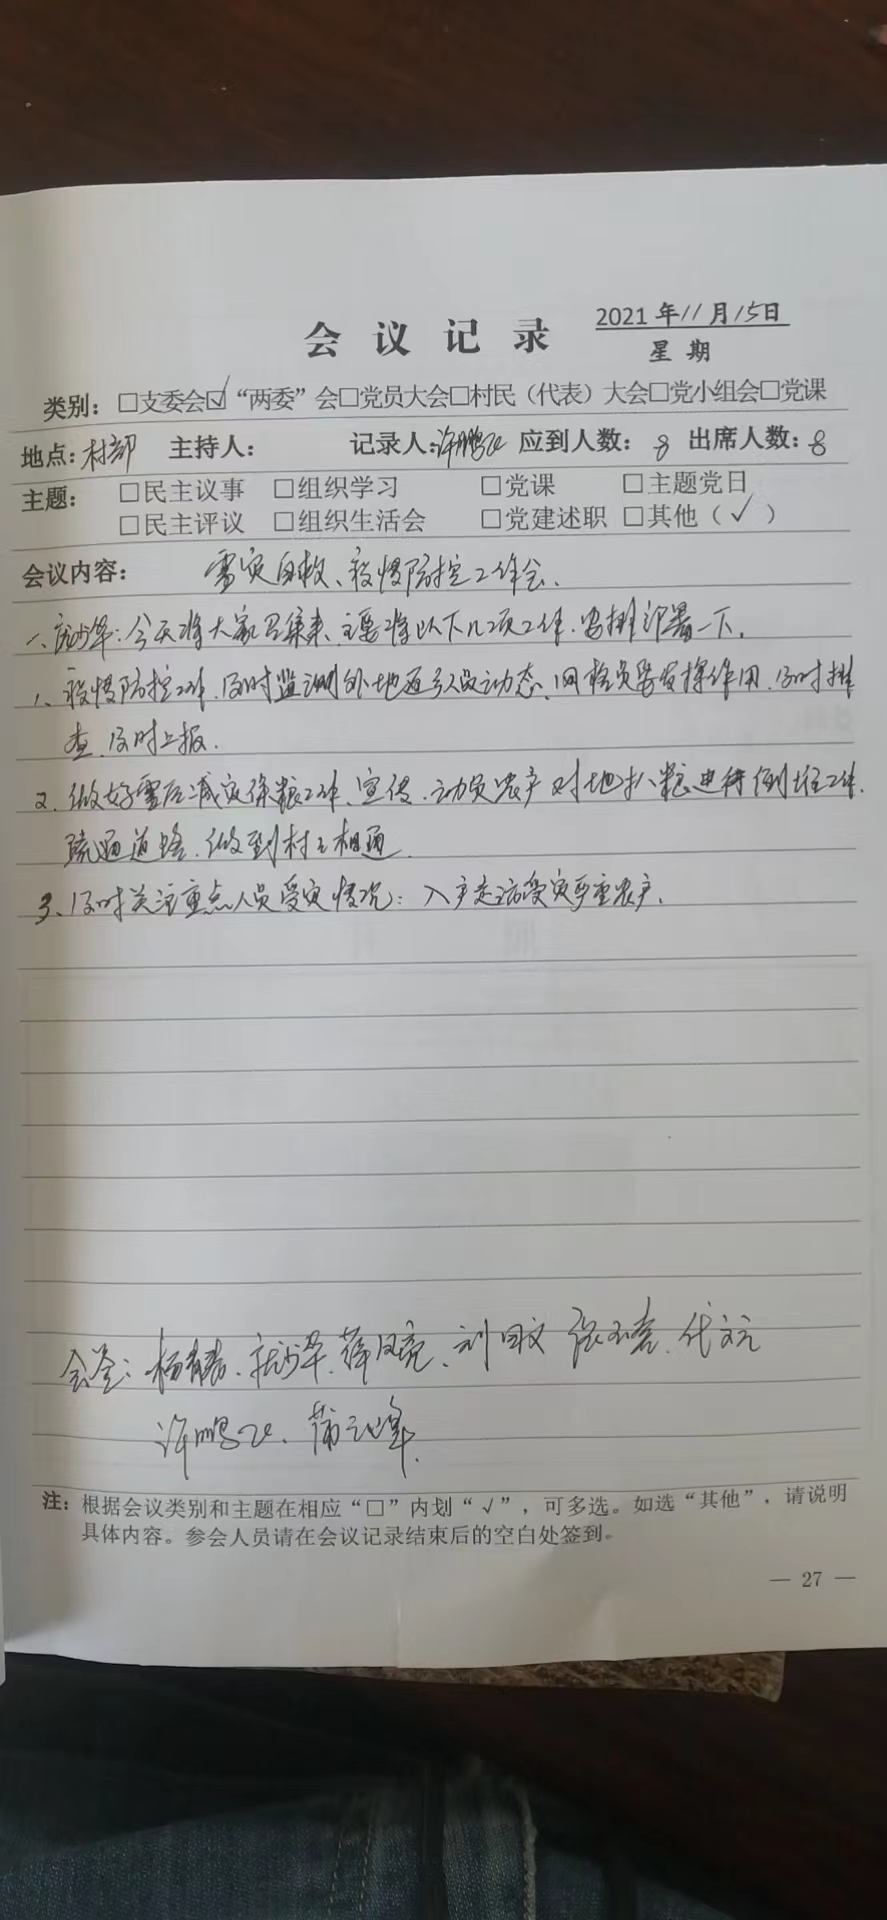 会 议 记 录
2021 年 11 月 15日
星 期
类别：□支委会☑“两委”会□党员大会□村民（代表）大会□党小组会□党课
地点：村部 主持人： 记录人：许鹏飞 应到人数：8 出席人数：8
主题： □民主议事 □组织学习 □党课 □主题党日
□民主评议 □组织生活会 □党建述职 □其他（√）
会议内容： 雪灾自救、疫情防控工作会.
一、：今天将大家召集来、主要将以下几项工作.安排部署一下.
1、疫情防控工作.及时监测外地返乡人员动态、网格员要发挥作用.及时排
查、及时上报.
2、做好雪后减灾保粮工作、宣传、动员农户对地趴粮进行倒堆工作.
疏通道路.做到村相通.
3、及时关注重点人员受灾情况；入户走访受灾严重农户.
会签：杨春、薛凤亮、刘国文 张玉、代文
许鹏飞、蒲峰.
注：根据会议类别和主题在相应“□”内划“√”，可多选。如选“其他”，请说明
具体内容。参会人员请在会议记录结束后的空白处签到。
— 27 —